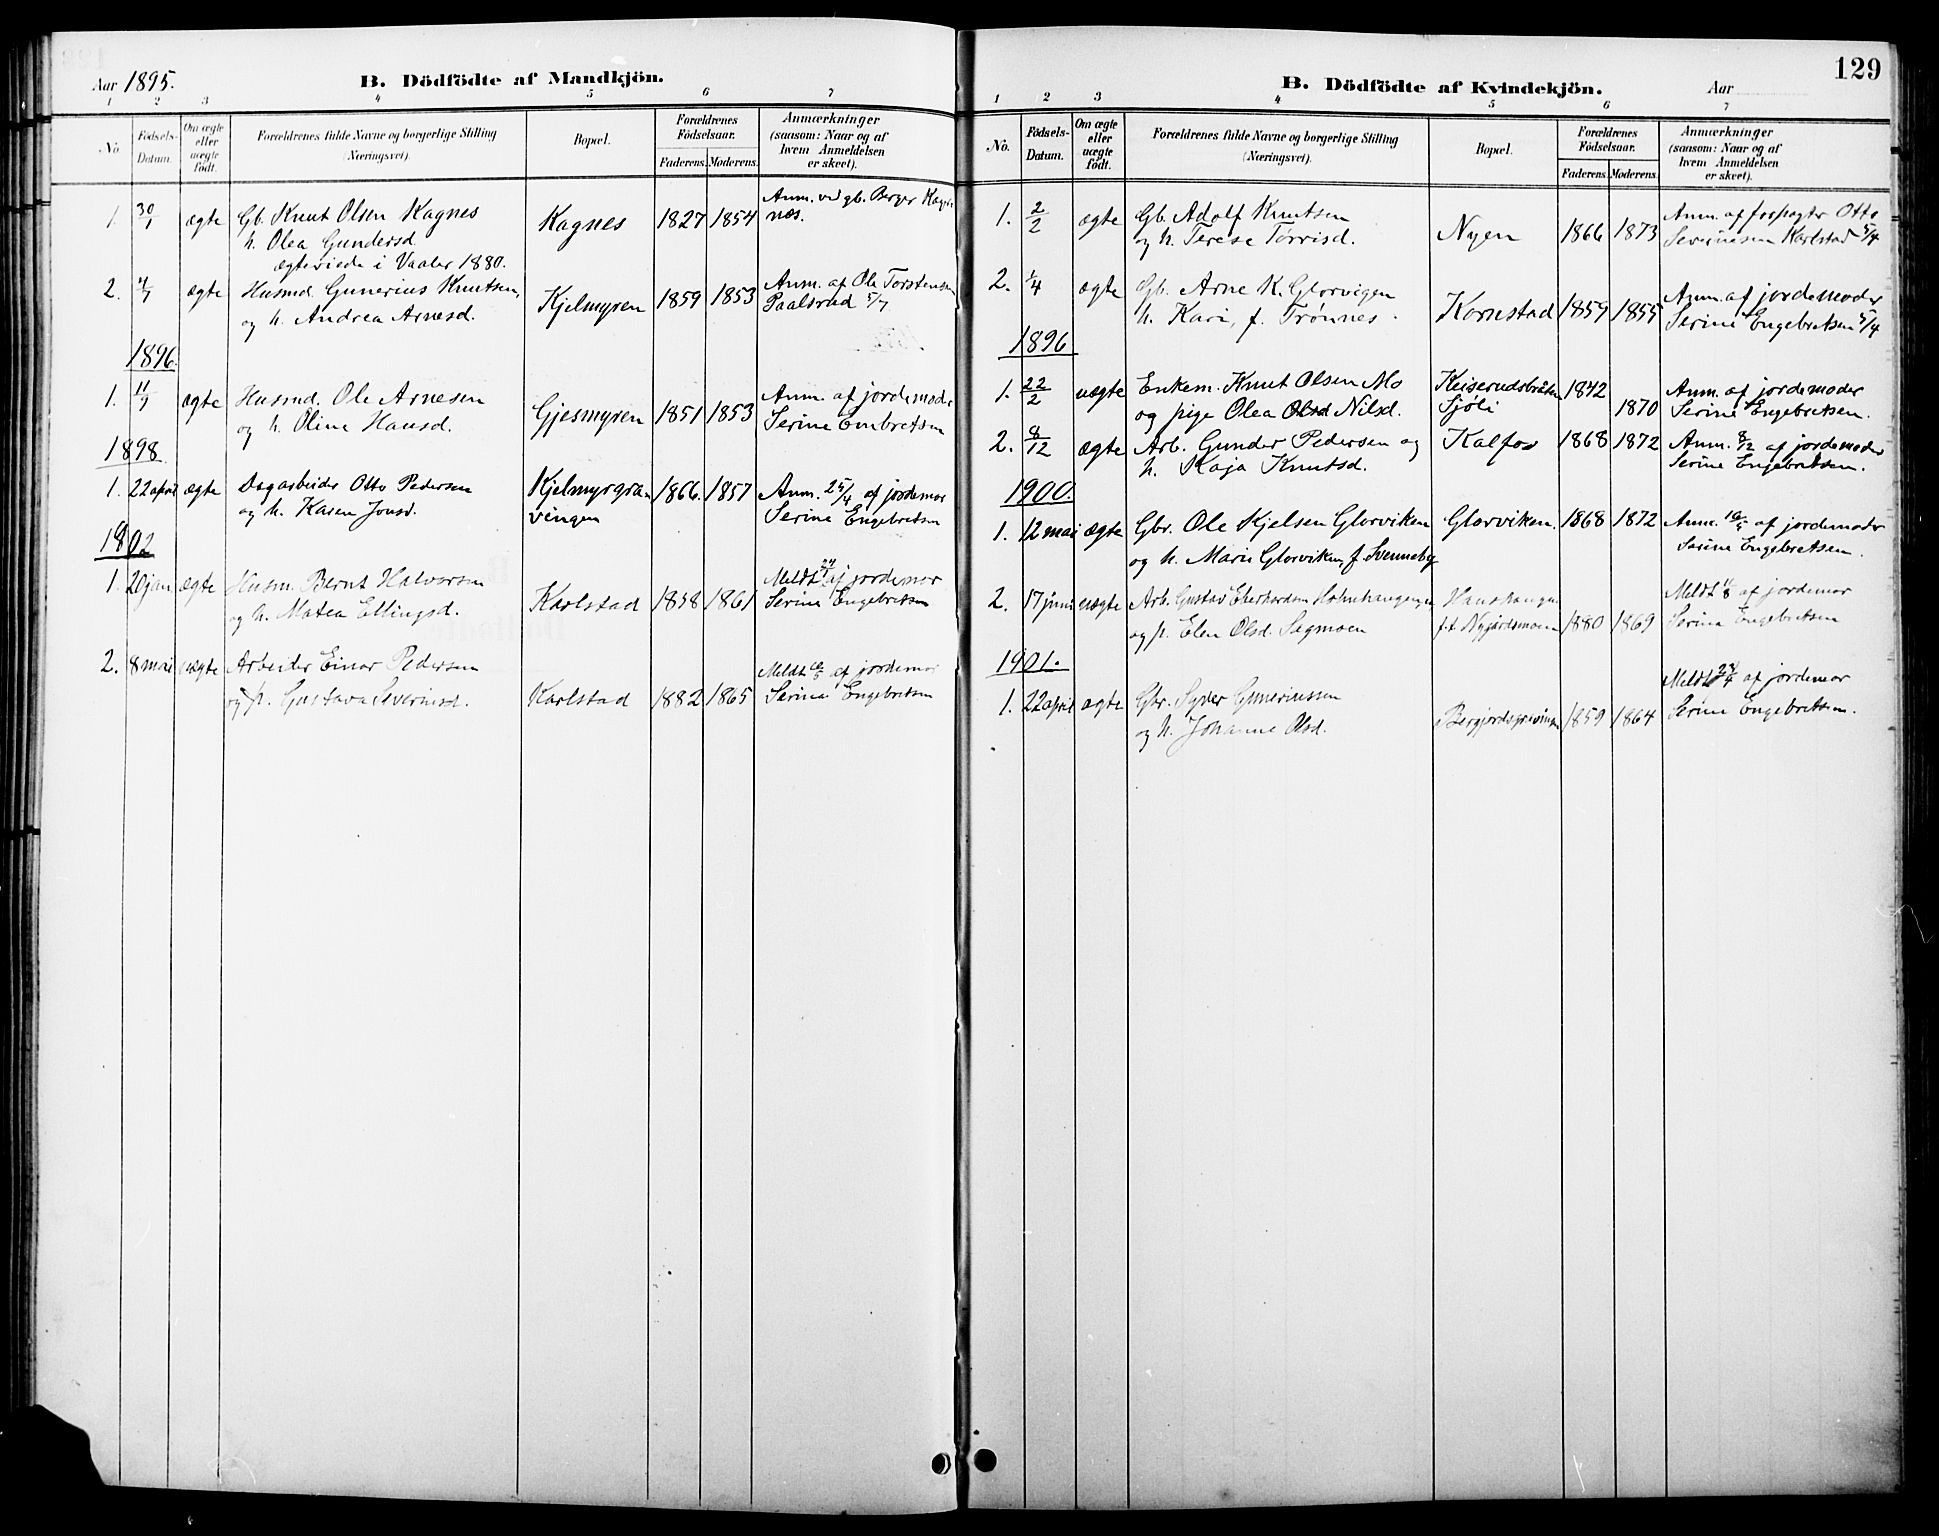 Aar 1895.
B. Dödfödte af Mandkjön.
1 2 3 4 5 6 7
No.
Födsels-Datum.
Om ægte eller uægte födt.
Forældrenes fulde Navne og borgerlige Stilling
(Næringsvei).
Bopæl.
Forældrenes Födselsaar.
Faderens. Moderens.
Anmærkninger
(saasom: Naar og af
hvem Anmeldelsen
er skeet).
1. 30/1 ægte Gb. Knut Olsen Kagnes
h. Olea Gundersd.
ægteviede i Vaaler 1880.
Kagnes 1827 1854
Anm. ved gb. Berger Kag
næs.
2. 4/7 ægte Husmd. Gunerius Knutsen,
og h. Andrea Arnesd.
Kjelmyren 1859 1853
Anm. af Ole Torstensen
Paalsrud 5/7
1896.
1. 11/9 ægte Husmd. Ole Arnesen
og h. Oline Hansd.
Gjesmyren 1851 1853
Anm. af jordemoder
Serine Embretsen
1898
1. 22 april ægte Dagarbeider Otto Pedersen
og h. Karen Jonsd.
Kjelmyrgra
vingen
1866. 1857
Anm. 25/4 af jordemor
Serine Engebretsen
1902
1. 20 jan ægte Husm. Bernt Halvorsen
og h. Matea Ellingsd.
Karlstad 1858 1861
Meldt af jordemor
Serine Engebretsen
2. 8 mai uægte Arbeider Einar Pedersen
og p. Gustava Severinsd.
Karlstad 1882 1865
Meldt af jordemor
Serina Engebretsen
129
B. Dödfödte af Kvindekjön.
Aar
1 2 3 4 5 6 7
No.
Födsels-Datum.
Om ægte eller uægte födt.
Forældrenes fulde Navne og borgerlige Stilling
(Næringsvei).
Bopæl.
Forældrenes Födselsaar.
Faderens. Moderens.
Anmærkninger
(saasom: Naar og af
hvem Anmeldelsen
er skeet).
1. 2/2 ægte Gb. Adolf Knutsen
og h. Terese Tørrisd.
Nyen 1866 1873
Anm. af forpagter Otto
Severinsen Karlstad 5/4
2. 1/4 ægte Gb. Arne K. Glorvigen
h. Kari, f. Trønnes.
Kornstad 1859 1855
Anm. af jordemoder
Serine Engebretsen 5/4
1896
1. 22/2 uægte Enkem. Knut Olsen Mo
og pige Olea Olsd Nilsd.
Keiserudsbråten
Sjøli
1842 1870
Anm. af jordemoder
Serine Engebretsen.
2. 8/12 ægte Arb. Gunder Pedersen og
h. Kaja Knutsd.
Kalfos 1868 1872
Anm. 8/12 af jordemoder
Serine Engebretsen.
1900.
1. 12 mai ægte Gbr. Ole Kjelsen Glorviken
og h. Marie Glorviken, f. Svenneby
Glorviken. 1868 1872
Anm. 16/5 af jordemoder
Serine Engebretsen.
2. 17 juni uægte Arb. Gustav
og p. Elen Olsd. Sagmoen
f.t. Nygårdsmoen
1880 1869
Meldt af jordemor
Serina Engebretsen
1901.
1. 22 april ægte Gbr. Syver Guneriussen
og h. Johanne Olsd.
1859 1864
Meldt 24/4 af jordemor
Serine Engebretsen.